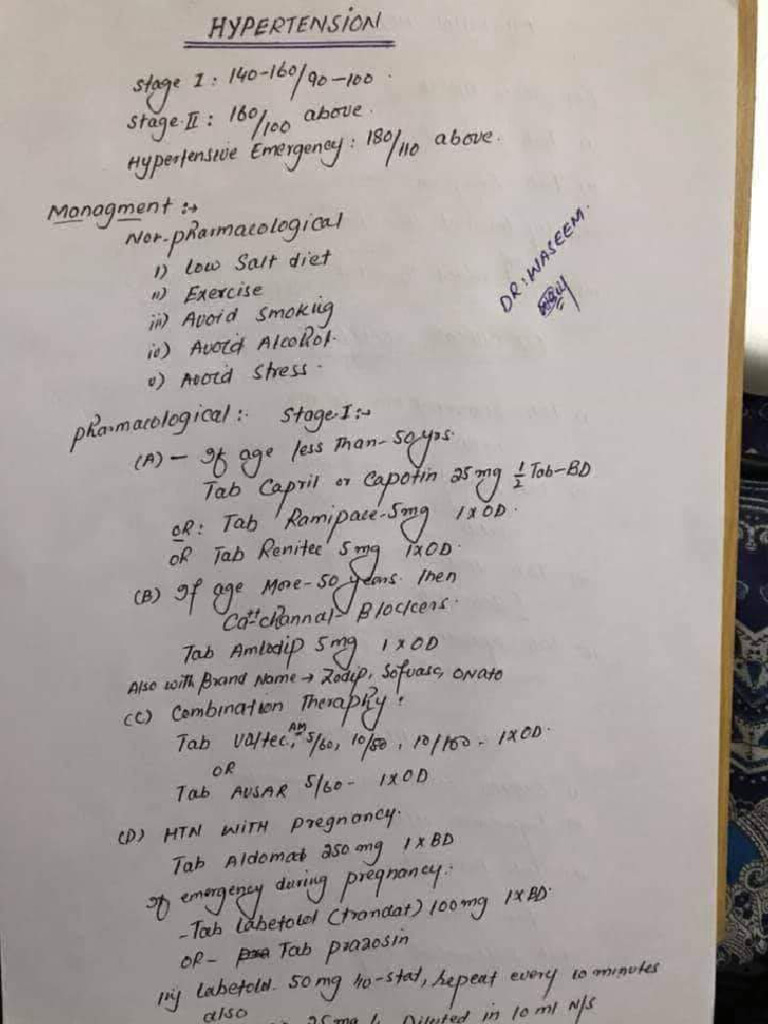 HYPERTENSION
Stage I : 140-160/90-100.
Stage II : 160/100 above.
Hypertensive Emergency : 180/110 above.
Managment :→
Non-pharmacological
i) Low Salt diet
ii) Exercise
iii) Avoid Smoking
iv) Avoid Alcohol.
v) Avoid Stress -
DR: WASEEM.
Pharmacological :- Stage-I :→
(A) - If age less than - 50 yrs.
Tab Capril or Capotin 25 mg ½ Tab-BD
OR: Tab Ramipace-5mg 1 x OD.
OR Tab Renitec 5 mg 1xOD.
(B) If age More - 50 years. then
Ca++ channal - Blockers.
Tab Amlodip 5mg 1 x OD
Also with Brand Name → Zodip, Sofvasc, ONato
(C) Combination Theraphy :
Tab Valtec, AM 5/80, 10/80, 10/160 - 1XOD.
OR
Tab AUSAR 5/80 - 1XOD
(D) HTN WITH Pregnancy.
Tab Aldomet 250 mg 1 x BD
If emergency during pregnancy :-
- Tab Labetolol (trandat) 100 mg 1x BD.
OR - Tab prazosin
Inj Labetold. 50 mg stat, repeat every 10 minutes
also
25 mg Diluted in 10 ml N/S